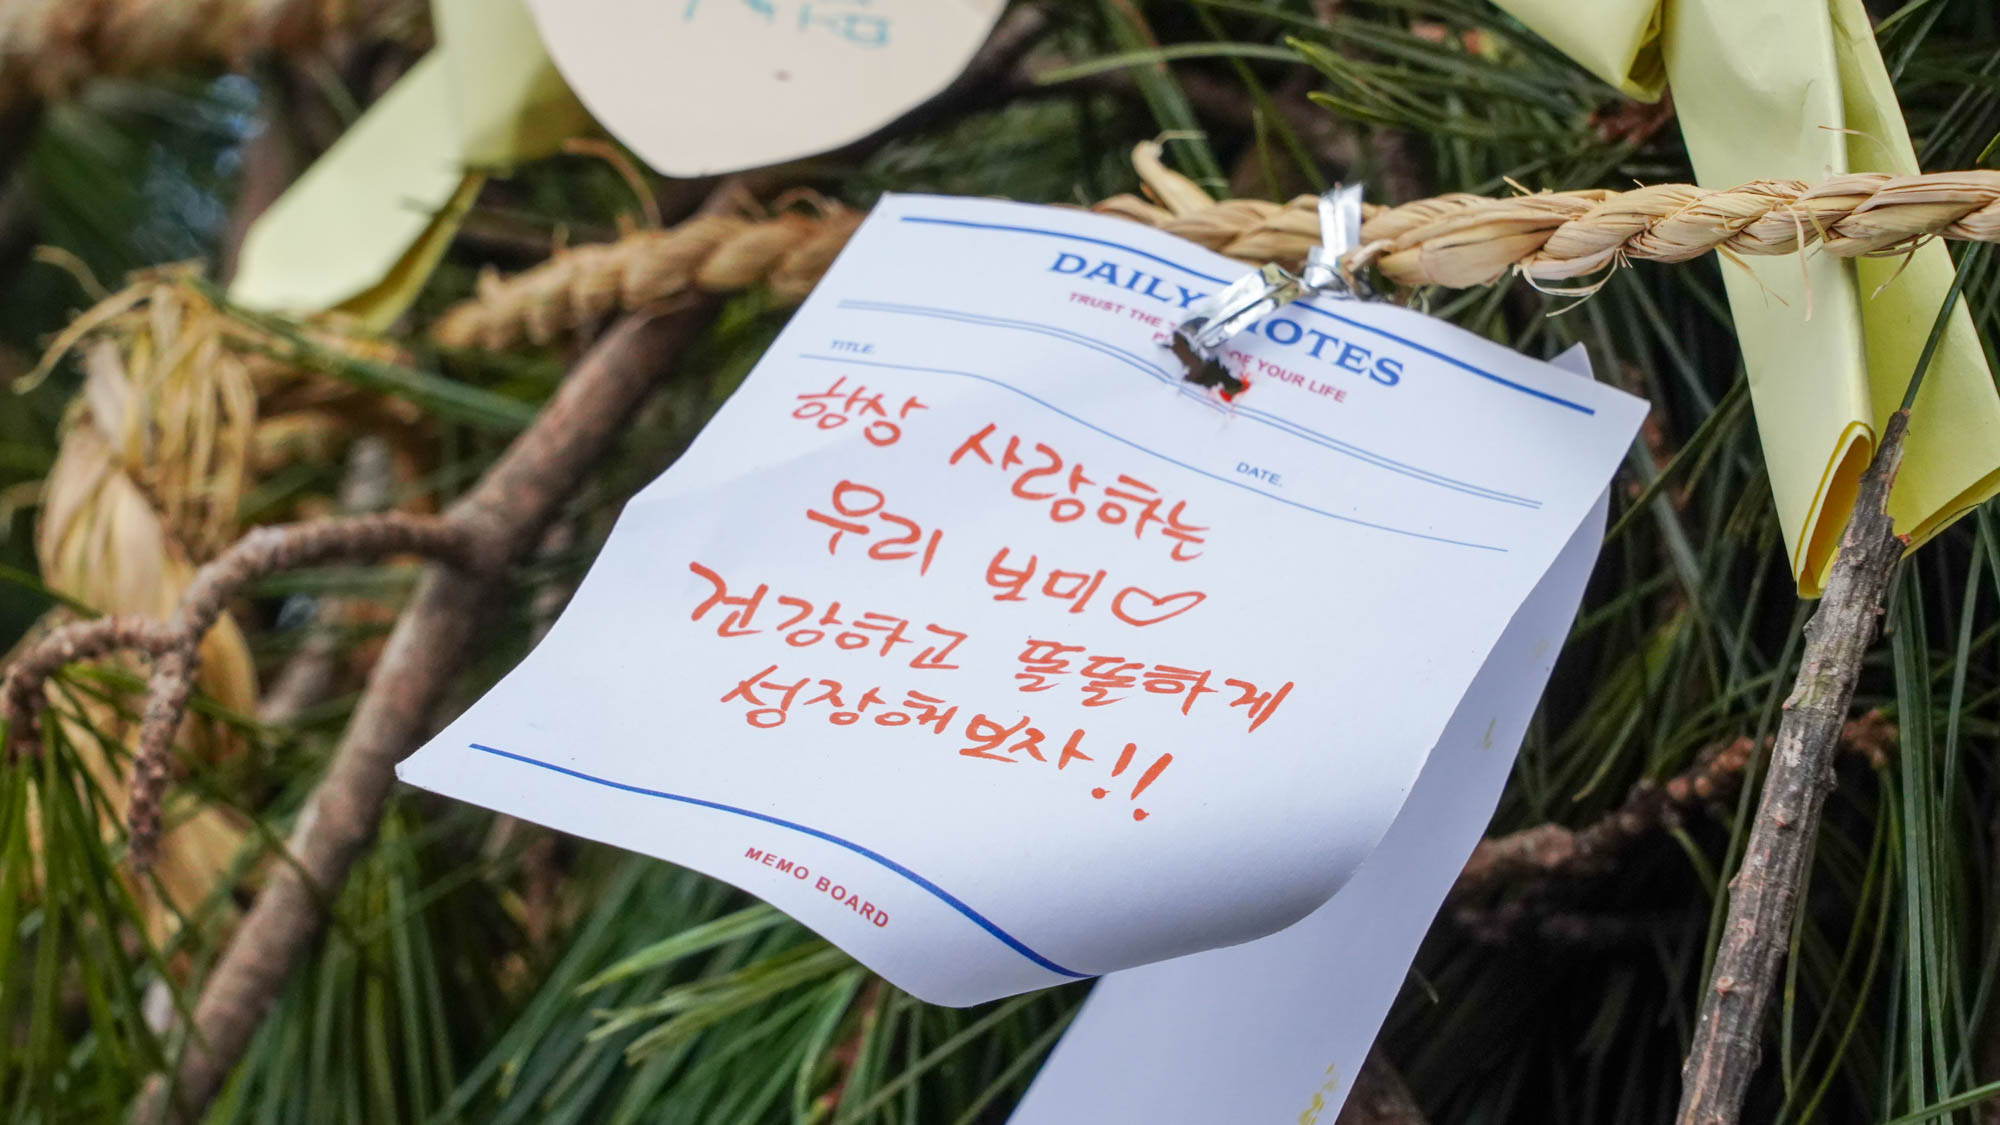 DAILY NOTES
TRUST THE
OF YOUR LIFE
TITLE.
DATE.
항상 사랑하는
우리 보미♡
건강하고 똘똘하게
성장해보자!!
MEMO BOARD